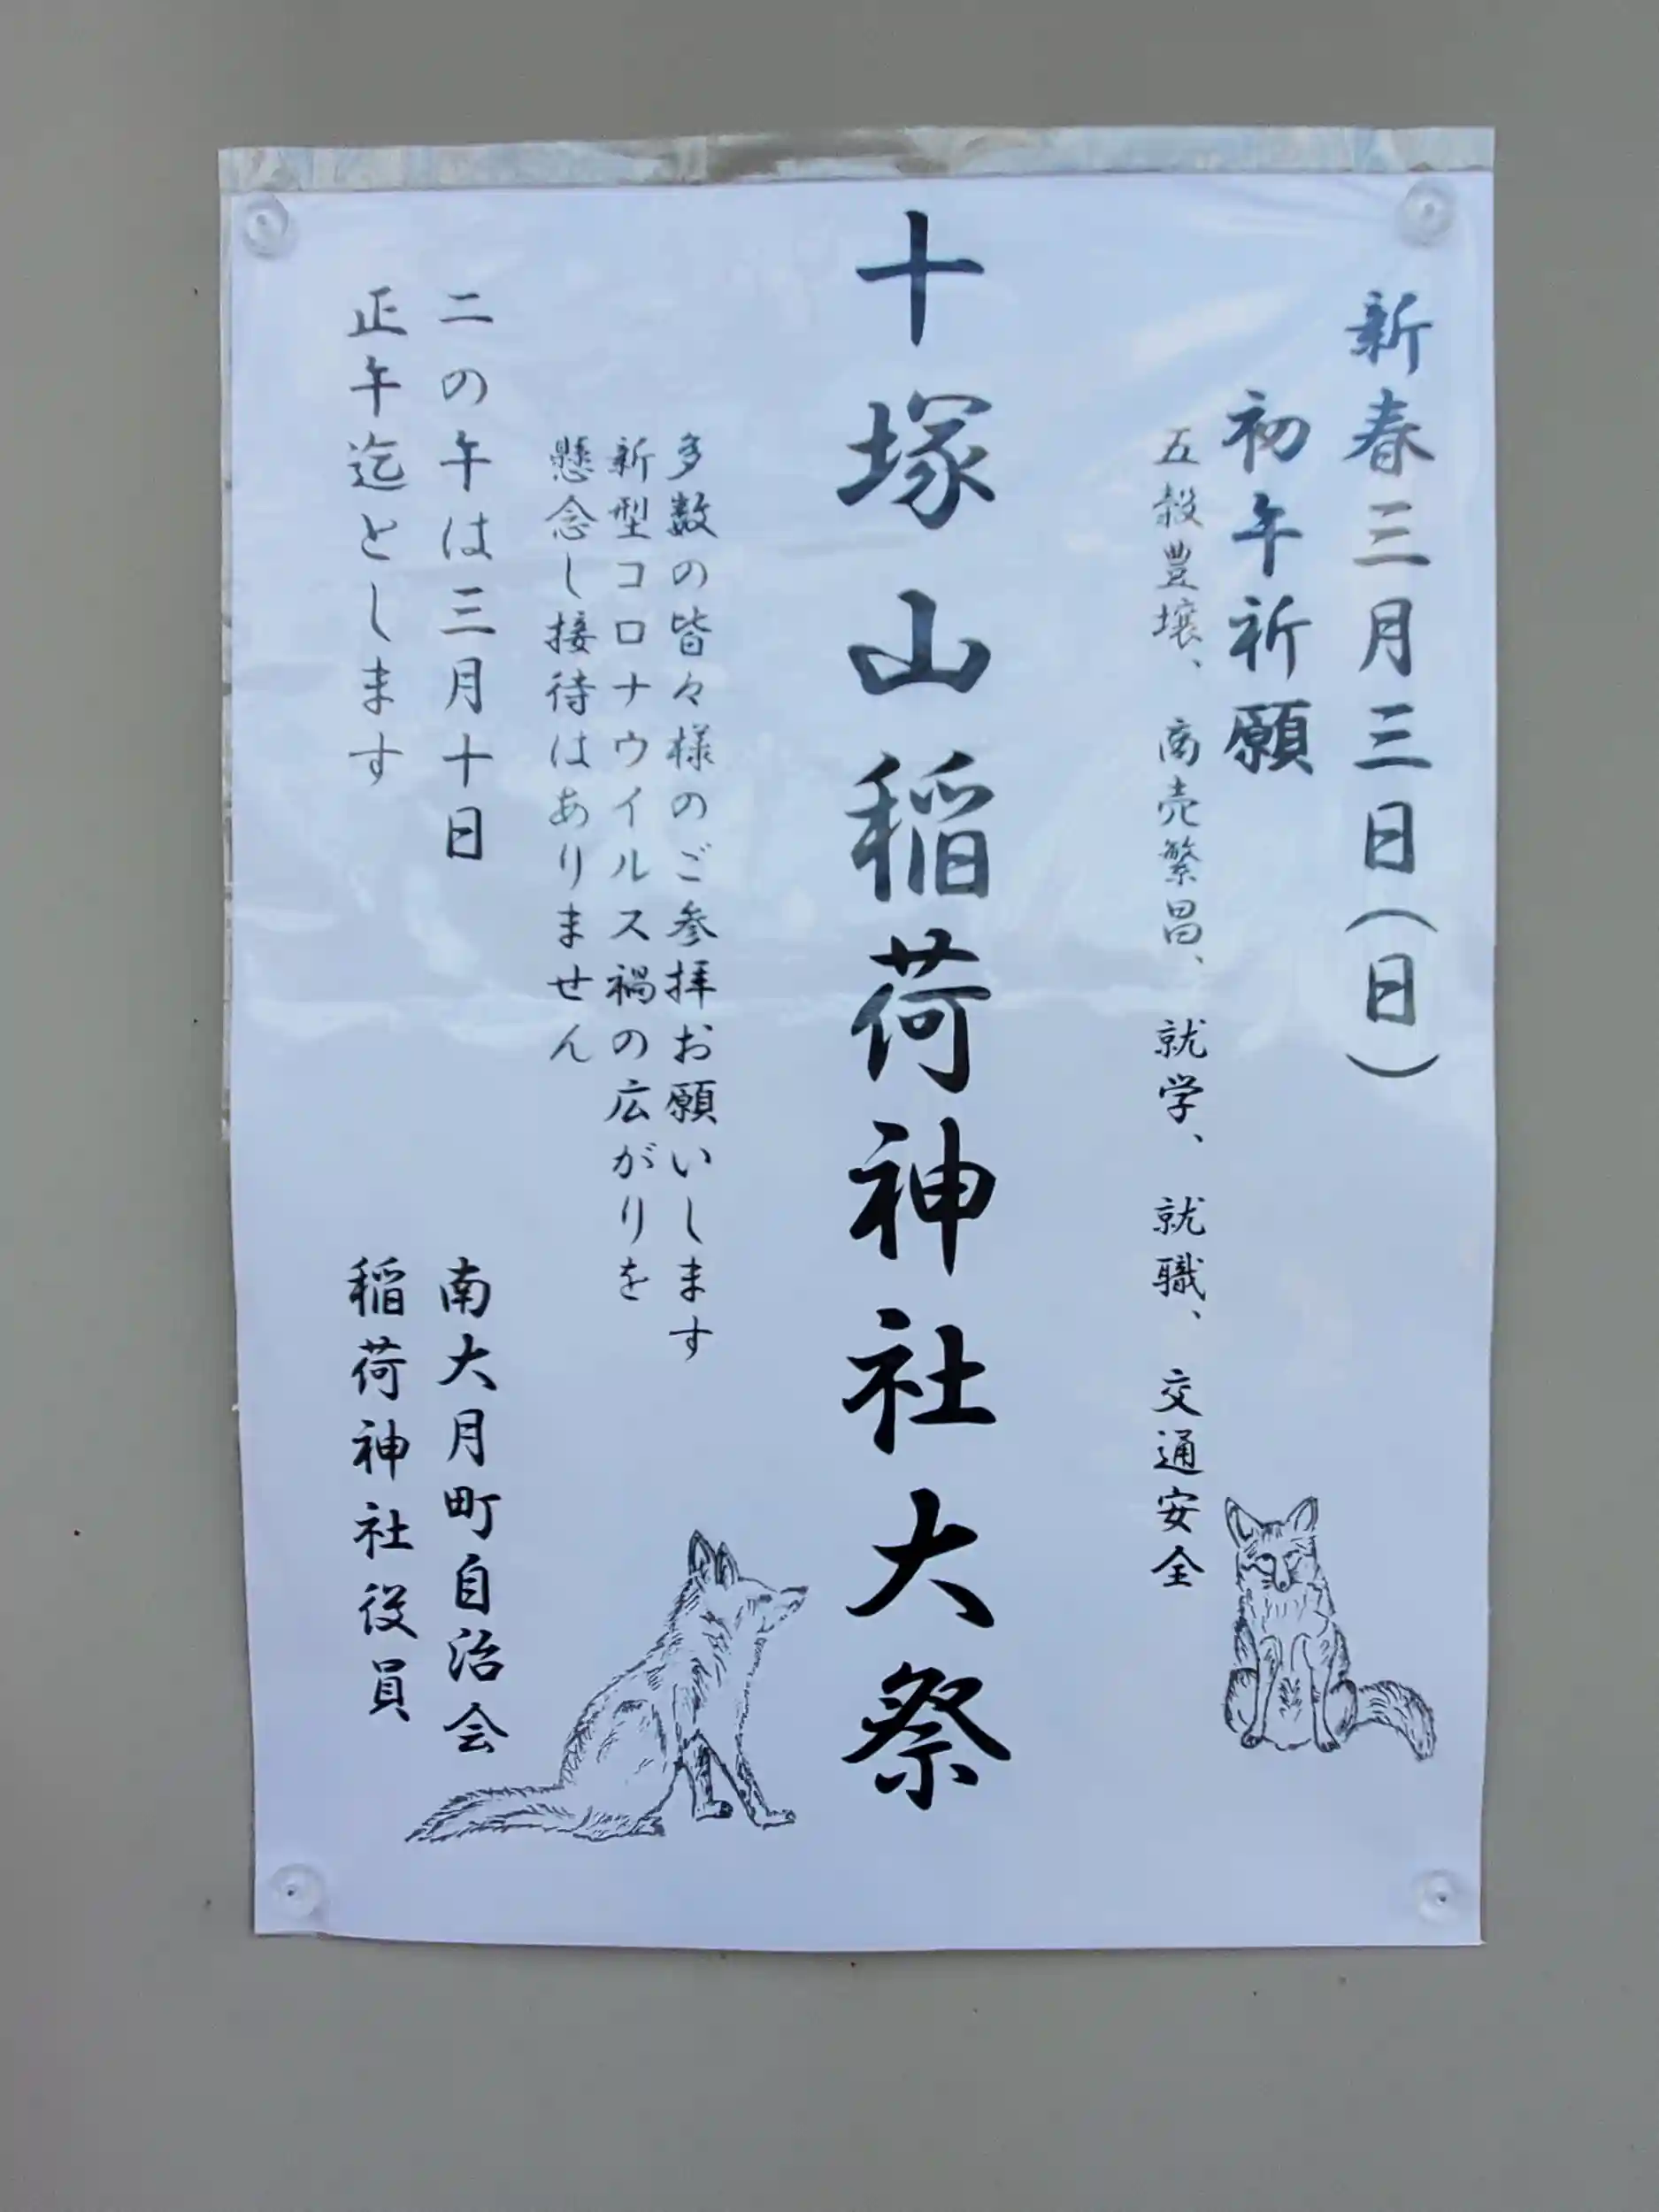 新春三月三日(日)
初午祈願
五穀豊壌、商売繁昌、就学、就職、交通安全
十塚山稲荷神社大祭
多数の皆々様のご参拝お願いします
新型コロナウイルス禍の広がりを
懸念し接待はありません
二の午は三月十日
正午迄とします
南大月町自治会
稲荷神社役員